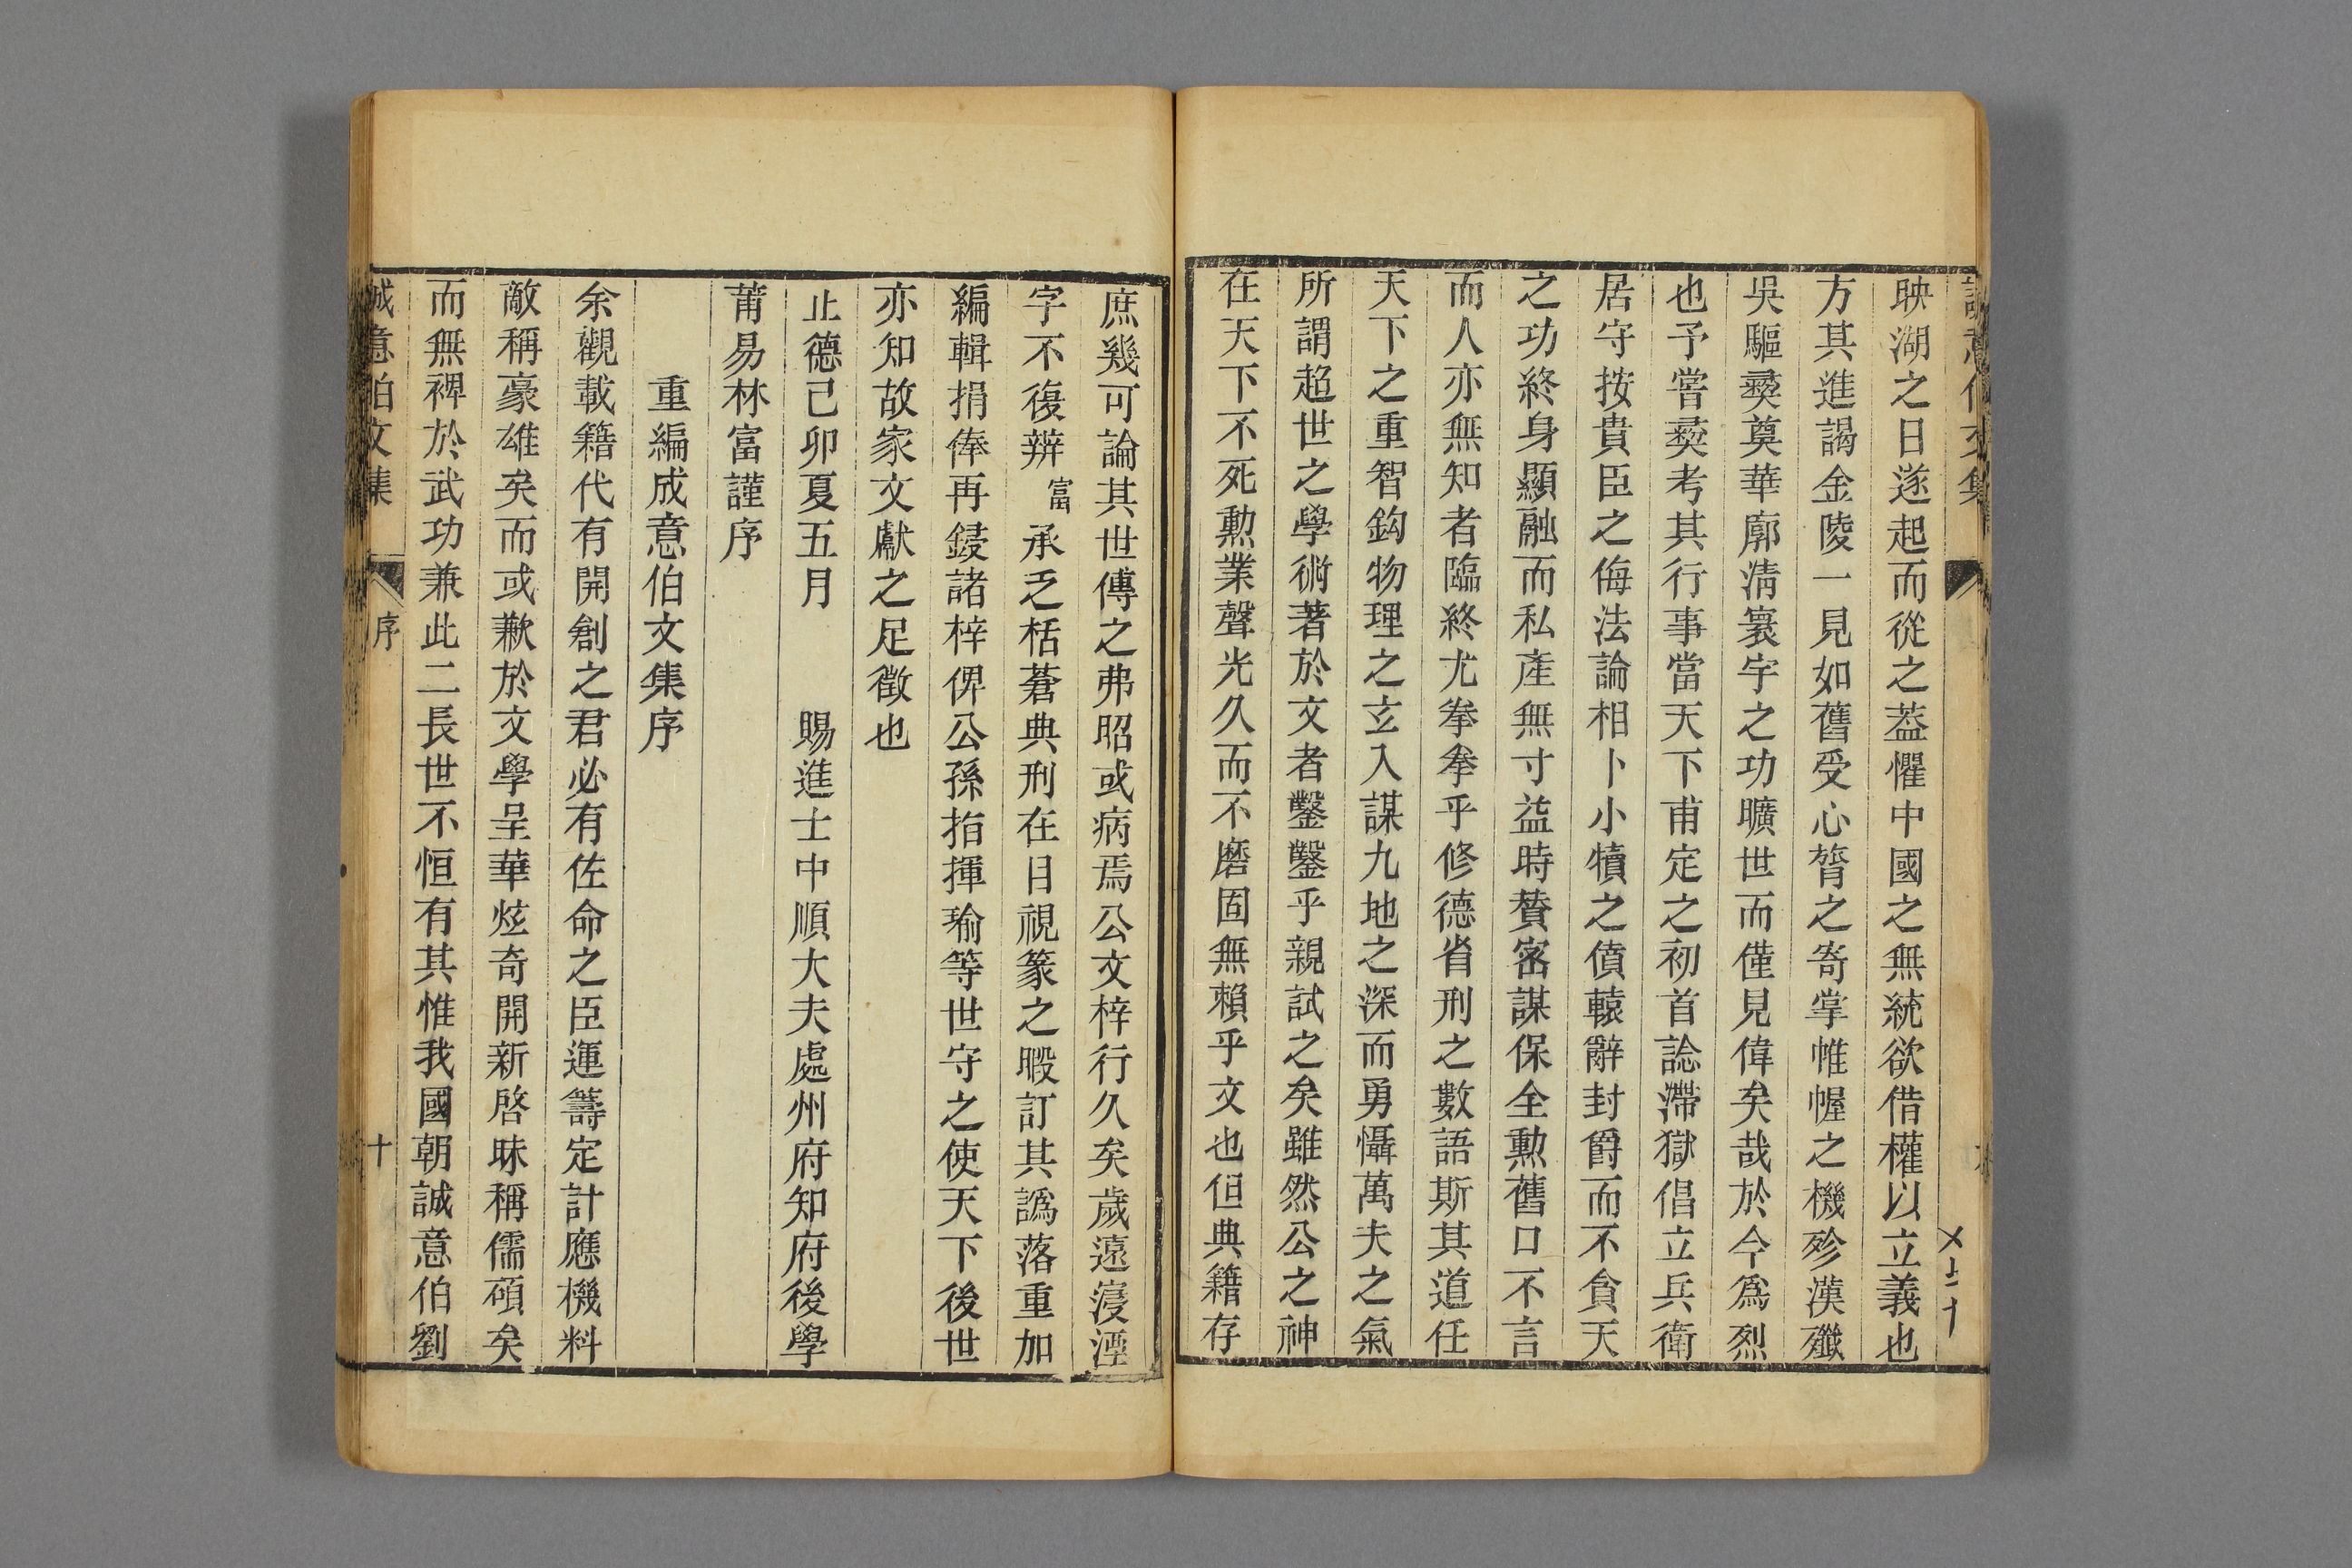 誠意伯文集
暎湖之日遂起而從之葢懼中國之無統欲借權以立義也
方其進謁金陵一見如舊受心膂之寄掌帷幄之機殄漢殲
吳驅彛奠華廓淸寰宇之功曠世而僅見偉矣哉於今爲烈
也予嘗彛考其行事當天下甫定之初首諗滯獄倡立兵衛
居守按貴臣之侮法論相卜小犢之僨轅辭封爵而不貪天
之功終身顯融而私產無寸益時賛密謀保全勲舊口不言
而人亦無知者臨終尤拳拳乎修德省刑之數語斯其道任
天下之重智鈎物理之玄入謀九地之深而勇懾萬夫之氣
所謂超世之學術著於文者鑿鑿乎親試之矣雖然公之神
在天下不死勲業聲光久而不磨固無賴乎文也但典籍存
庶幾可論其世傳之弗昭或病焉公文梓行久矣歲遠寖湮
字不復辨富承乏栝蒼典刑在目視篆之暇訂其譌落重加
編輯捐俸再鋟諸梓俾公孫指揮瑜等世守之使天下後世
亦知故家文獻之足徵也
止德己卯夏五月 賜進士中順大夫處州府知府後學
莆昜林富謹序
重編成意伯文集序
余觀載籍代有開創之君必有佐命之臣運籌定計應機料
敵稱豪雄矣而或歉於文學呈華炫奇開新啓昧稱儒碩矣
而無裨於武功兼此二長世不恒有其惟我國朝誠意伯劉
誠意伯文集 序 十